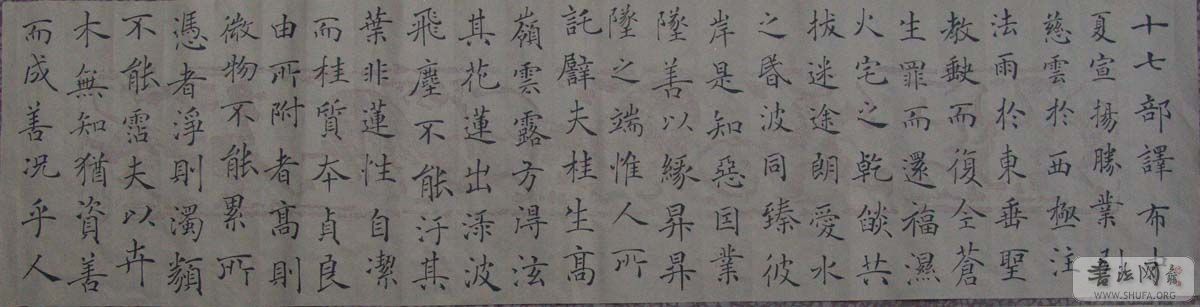 十七部譯布中
夏宣揚勝業引
慈雲於西極注
法雨於東垂聖
教缺而復全蒼
生罪而還福濕
火宅之乾燄共
拔迷途朗愛水
之昏波同臻彼
岸是知惡因業
墜善以緣昇昇
墜之端惟人所
託譬夫桂生高
嶺雲露方得泫
其花蓮出淥波
飛塵不能汙其
葉非蓮性自潔
而桂質本貞良
由所附者高則
微物不能累所
憑者淨則濁類
不能霑夫以卉
木無知猶資善
而成善況乎人
書法网
WWW.SHUFA.ORG